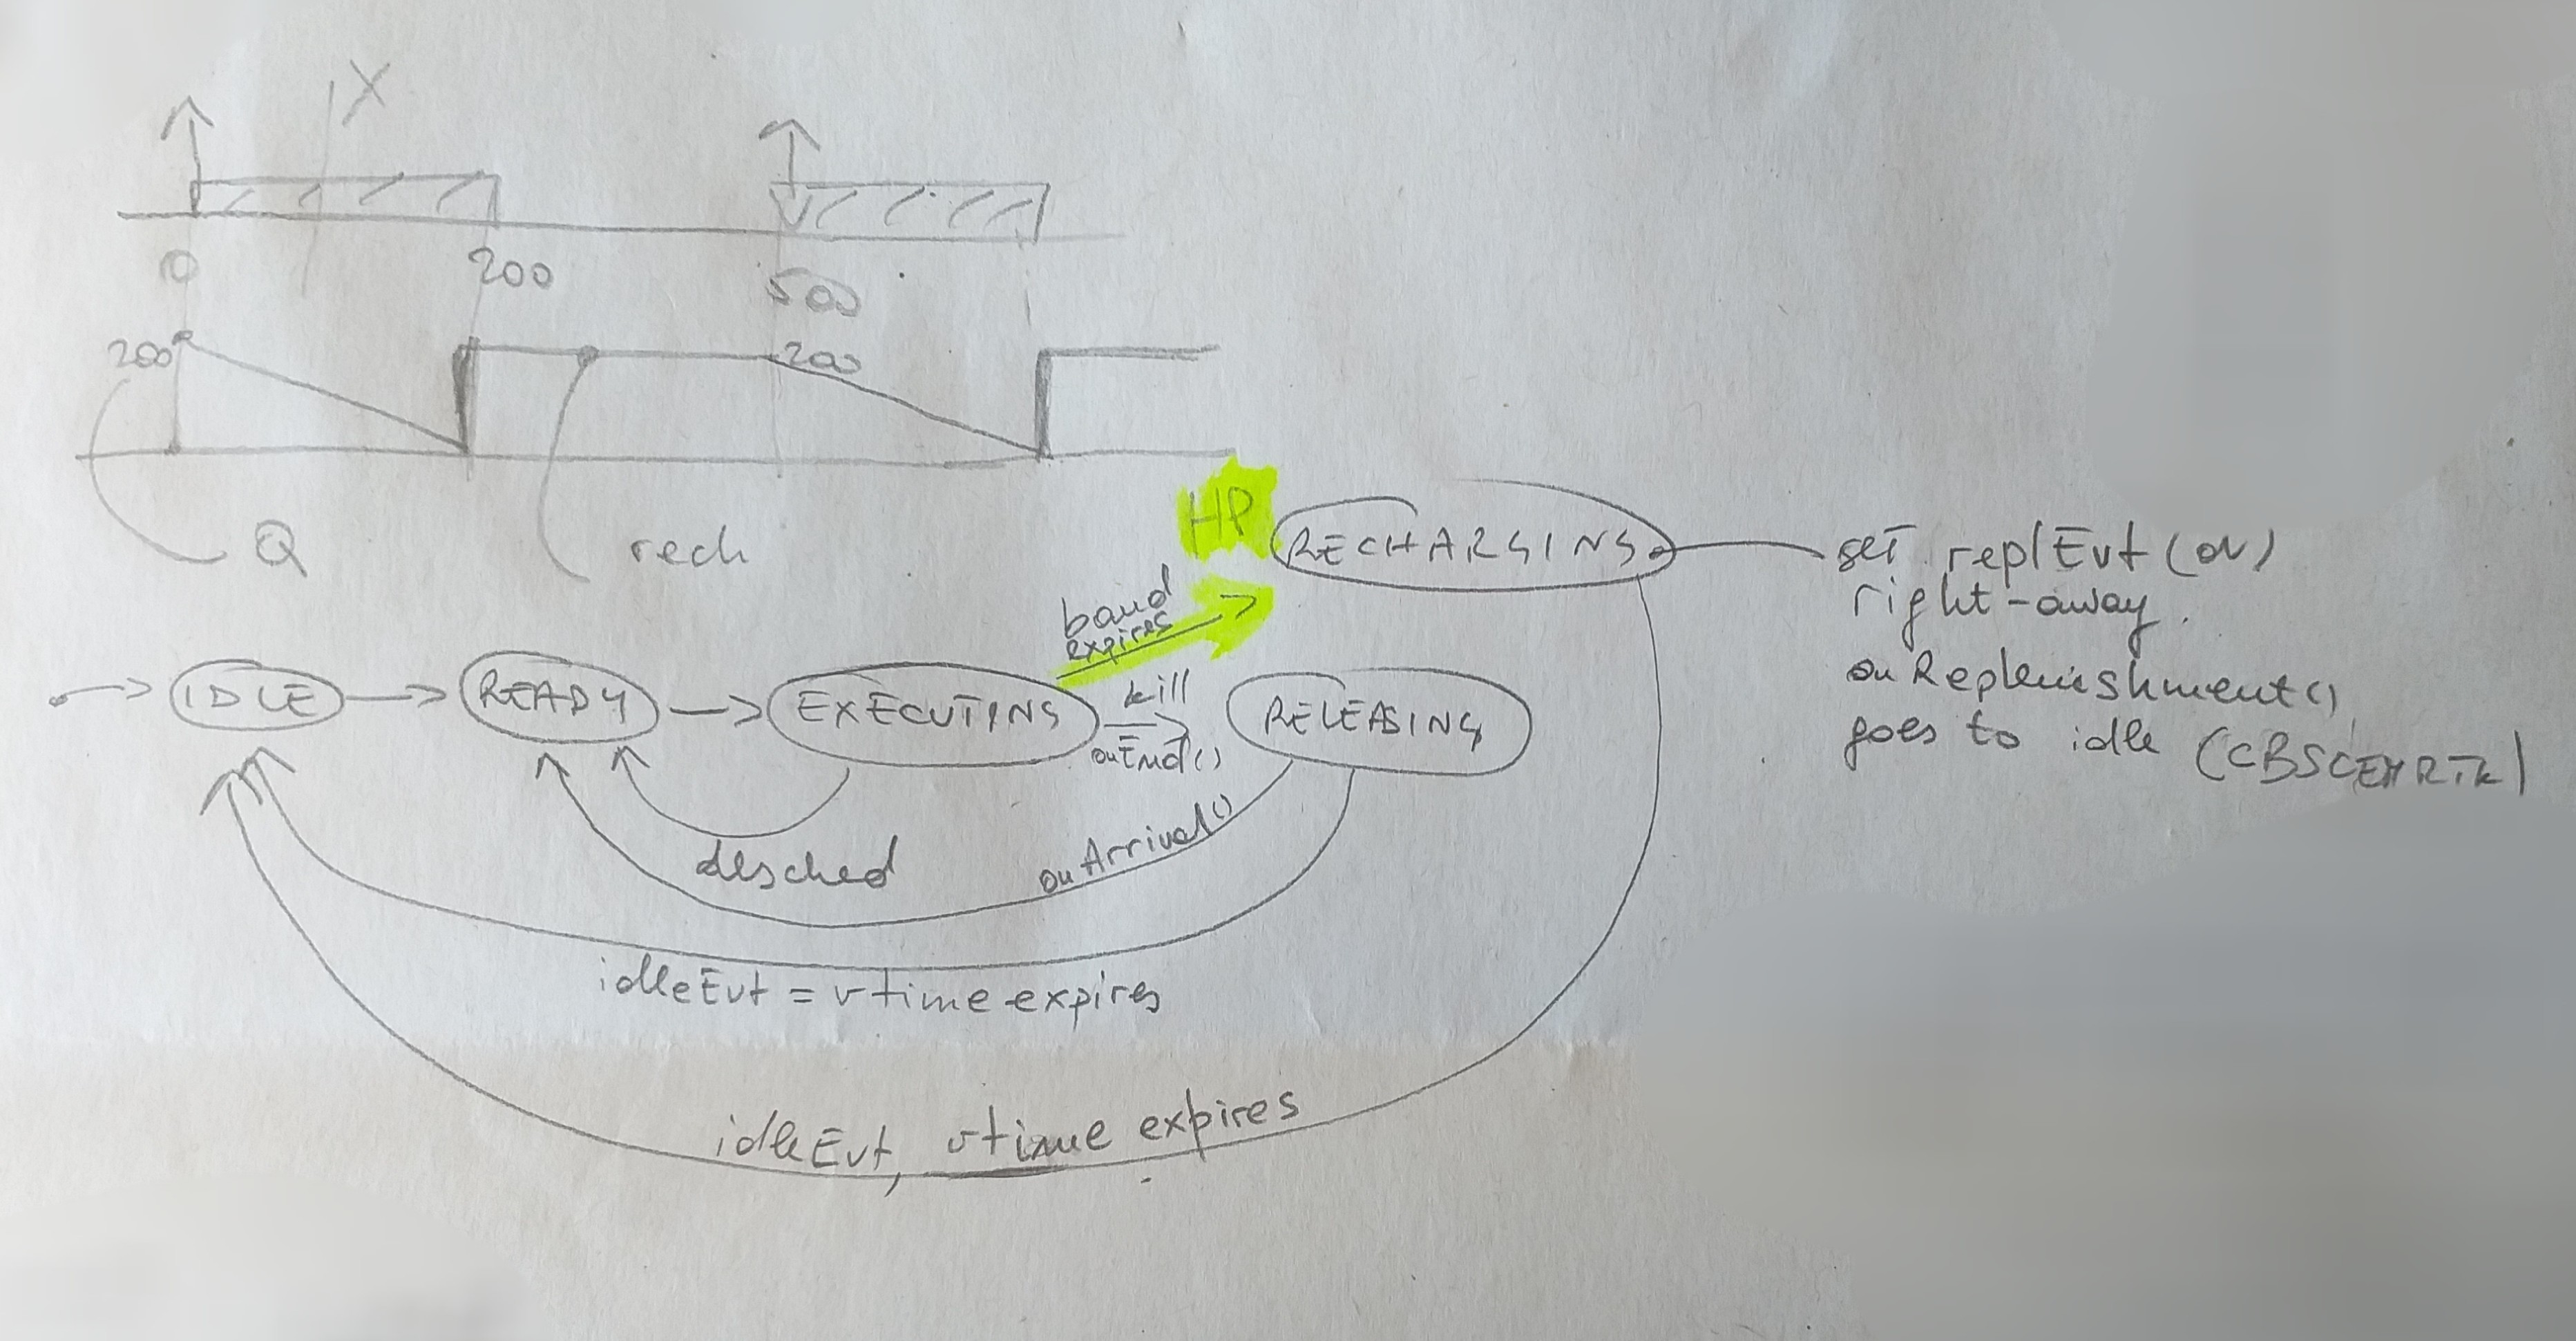 X
0
200
500
200
200
Q
rech
HP
RECHARGING
set replEvt (ON)
right-away.
onReplenishment()
goes to idle (CBSCEMRTK)
band
expires
IDLE
READY
EXECUTING
kill
onEnd()
RELEASING
desched
onArrival()
idleEvt = vtime expires
idleEvt, vtime expires